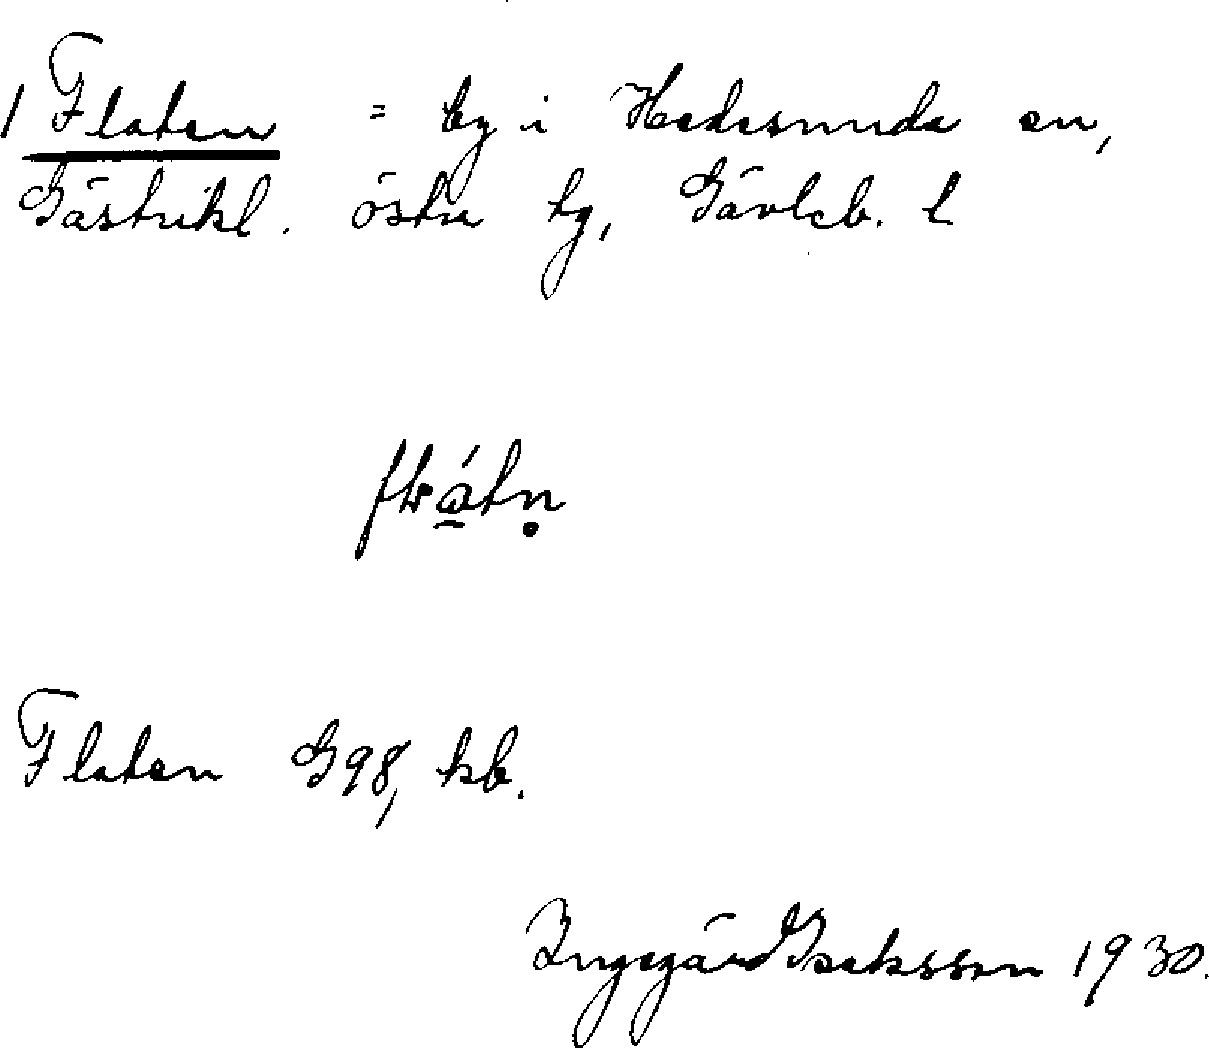 1 Flaten = by i Hedesunda sn,
Gästrikl. östra tg, Gävleb. l
Flaten G98, kb.
Ingegärd Isaksson 1930.